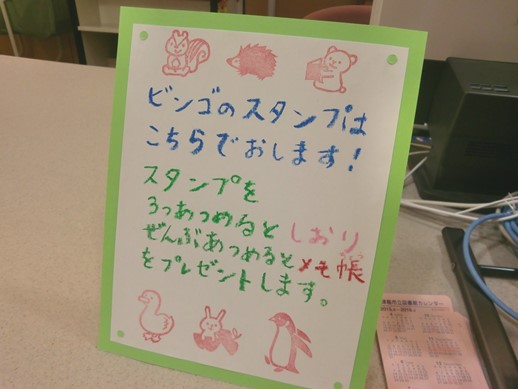 ビンゴのスタンプは
こちらでおします!
スタンプを
3つあつめるとしおり
ぜんぶあつめるとメモ帳
をプレゼントします。